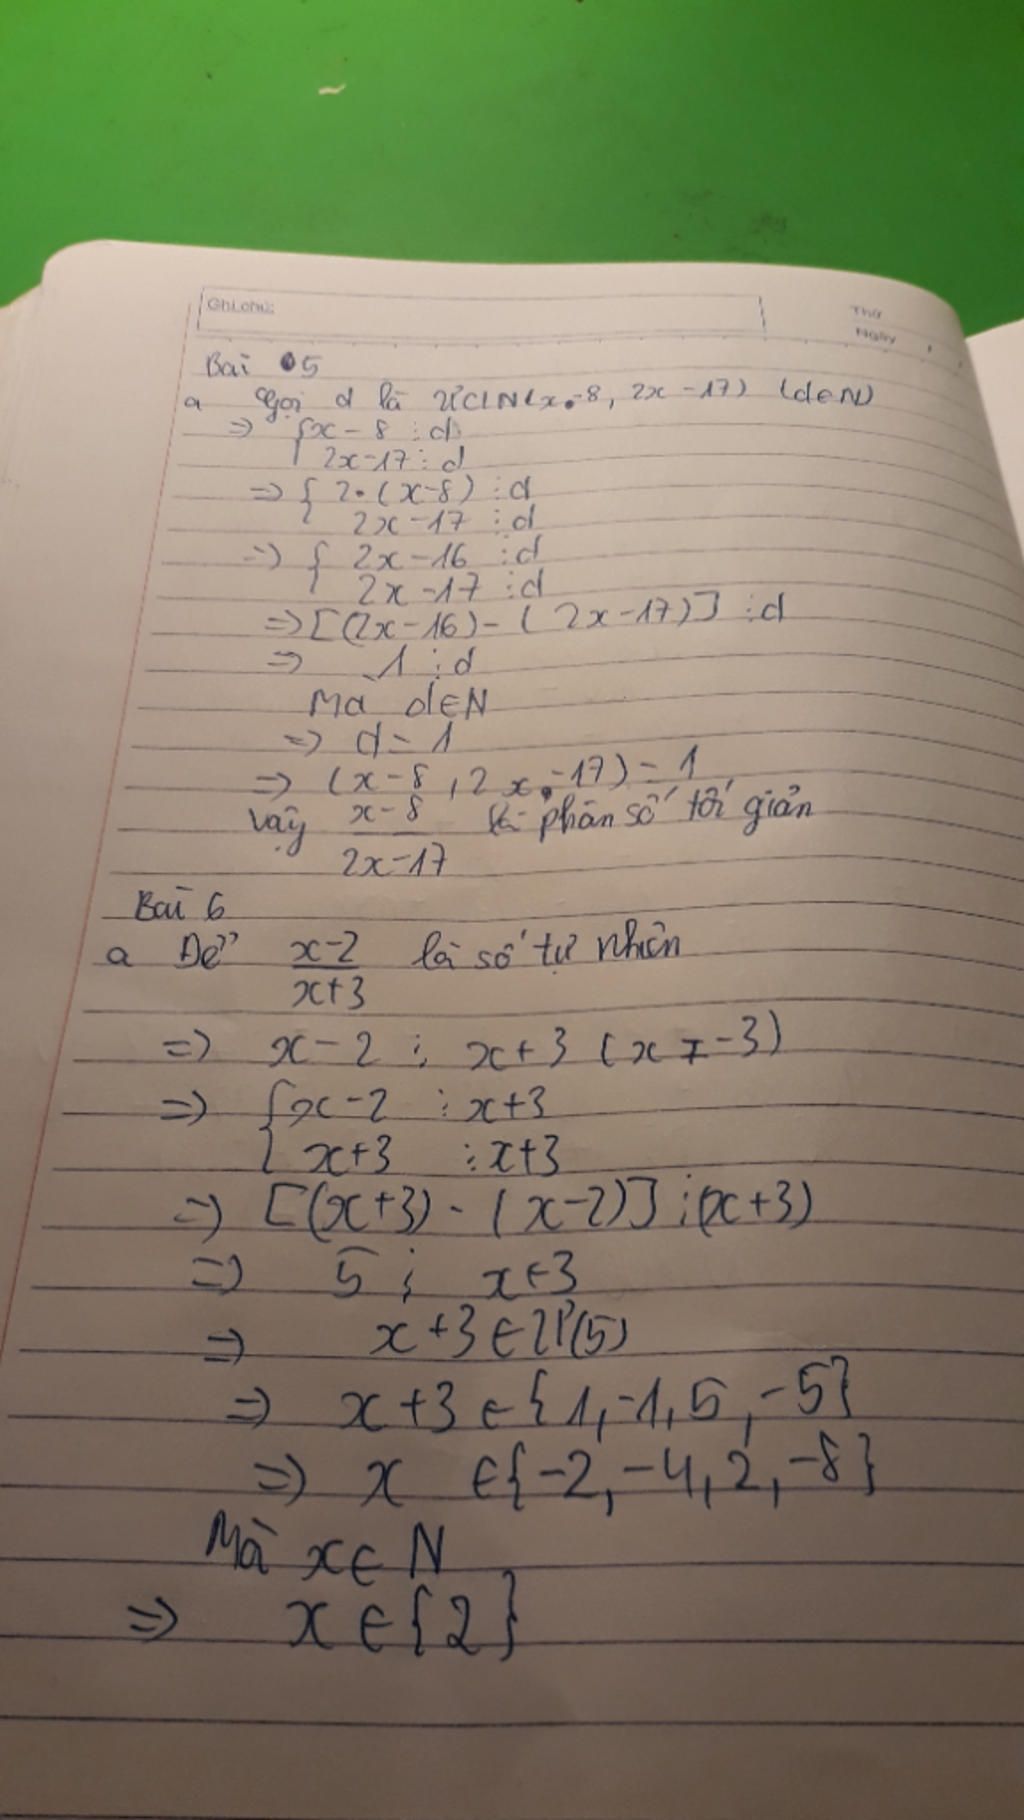 Ghi chú:
Thứ
Ngày
Bài 5
a Gọi d là ƯCLN(x-8, 2x-17) (d∈N)
=> { x-8 ⋮ d
2x-17 ⋮ d
=> { 2.(x-8) ⋮ d
2x-17 ⋮ d
=> { 2x-16 ⋮ d
2x-17 ⋮ d
=> [(2x-16)-(2x-17)] ⋮ d
=> 1 ⋮ d
Mà d∈N
=> d = 1
=> (x-8, 2x-17) = 1
Vậy x-8 là phân số tối giản
2x-17
Bài 6
a Để x-2 là số tự nhiên
x+3
=> x-2 ⋮ x+3 (x ≠ -3)
=> { x-2 ⋮ x+3
x+3 ⋮ x+3
=> [(x+3)-(x-2)] ⋮ (x+3)
=> 5 ⋮ x+3
=> x+3 ∈ Ư(5)
=> x+3 ∈ {1,-1,5,-5}
=> x ∈ {-2,-4,2,-8}
Mà x∈ N
=> x ∈ {2}